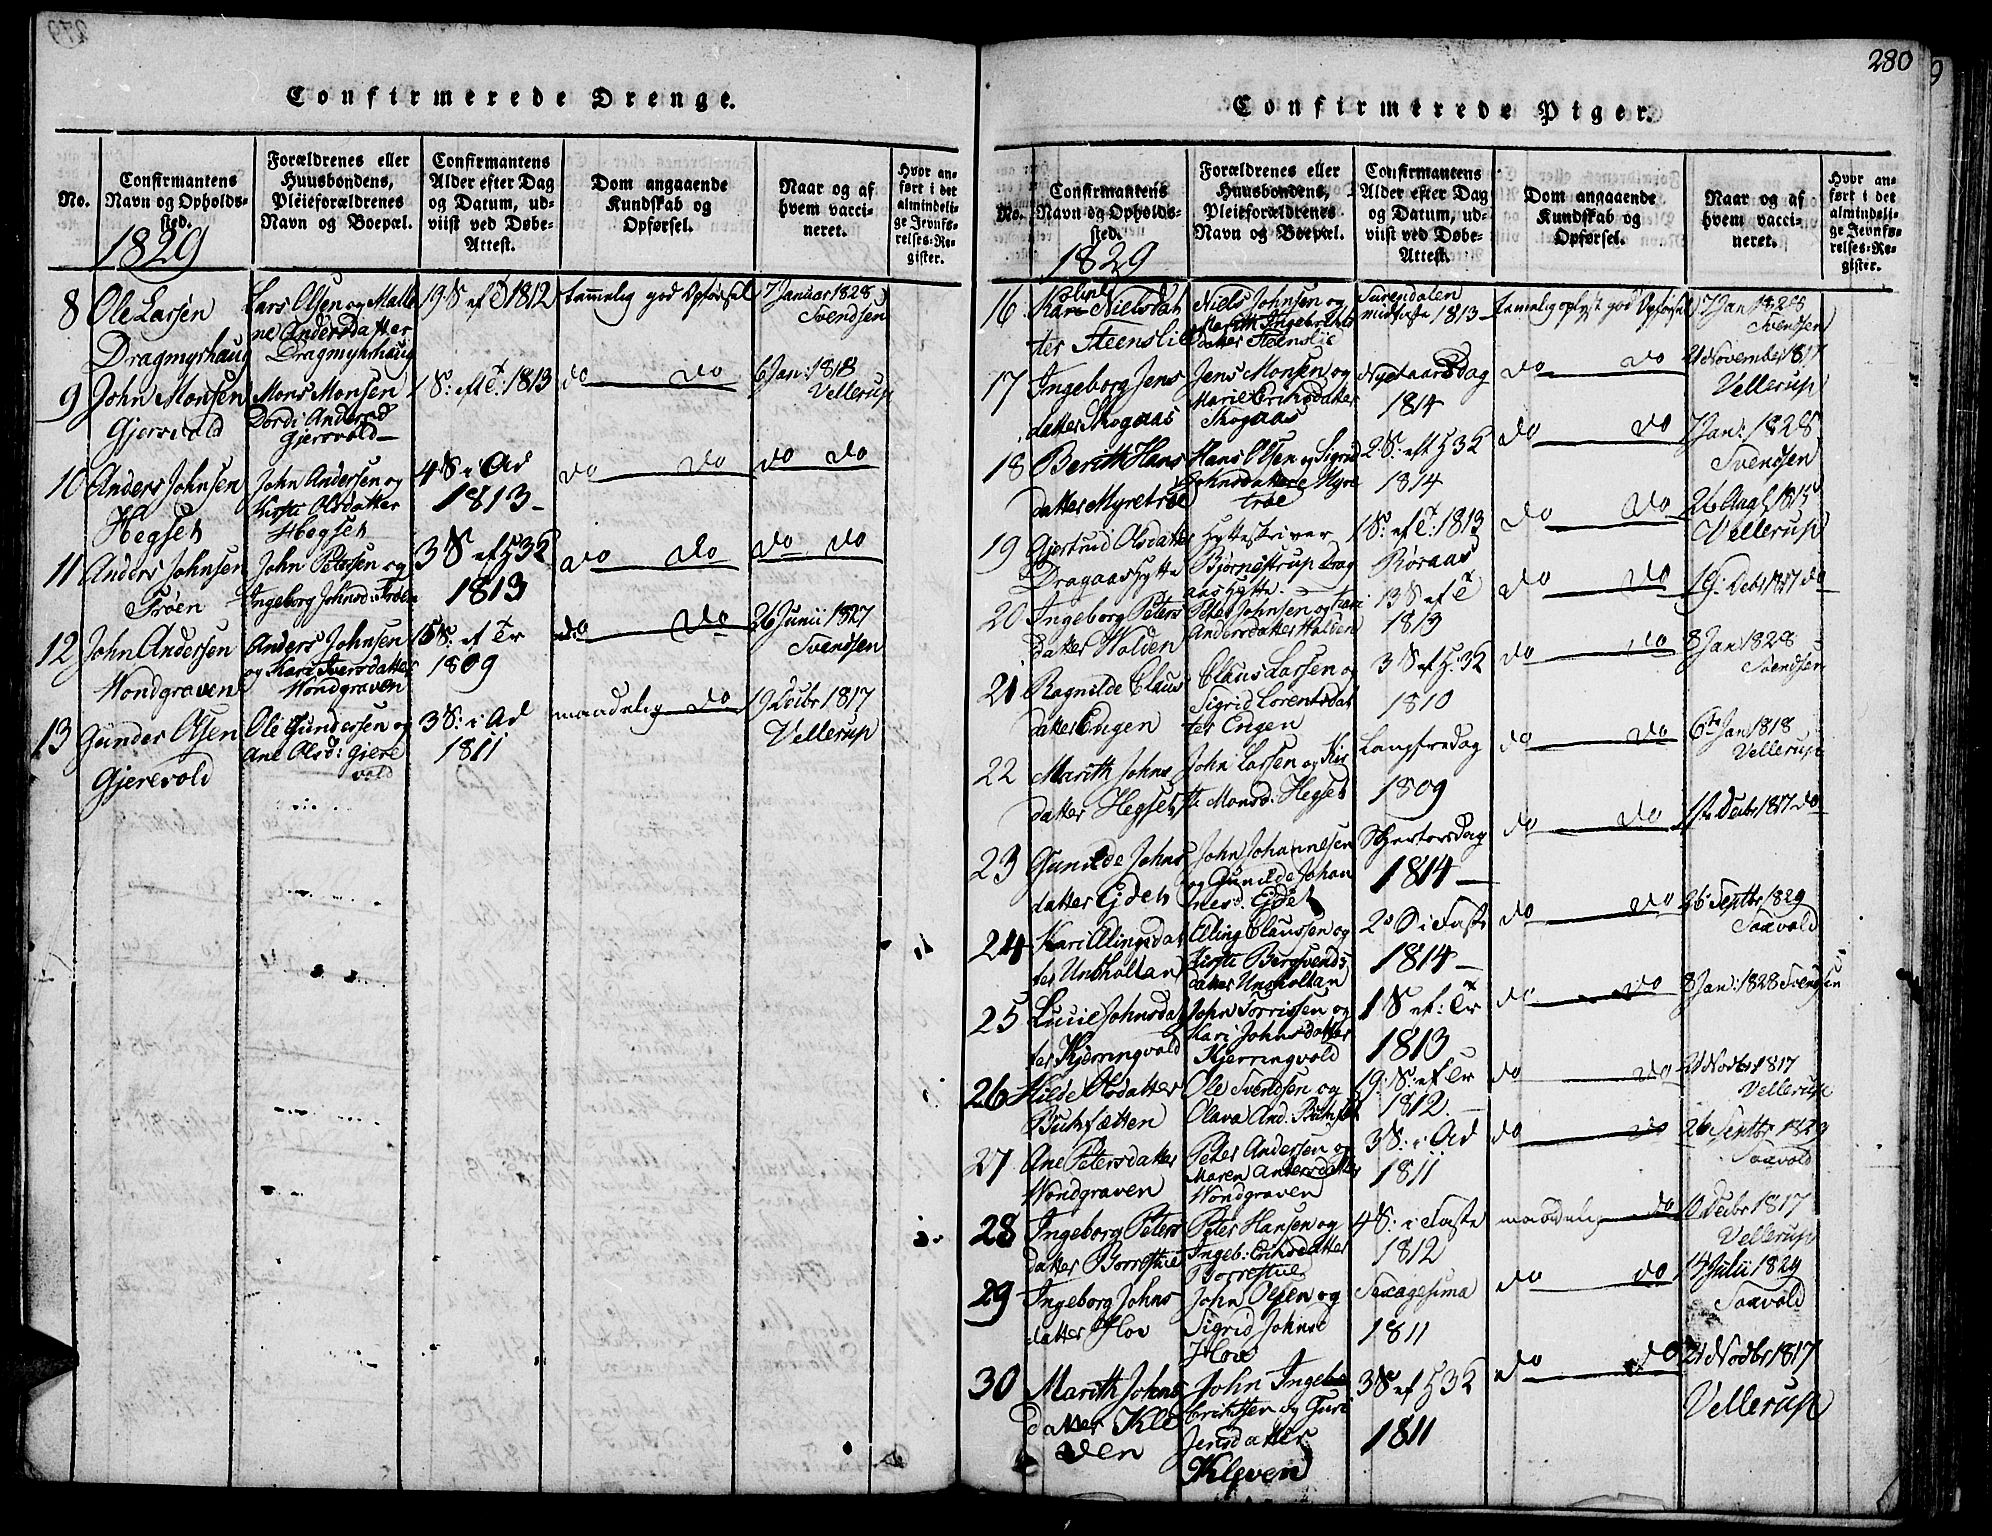 279
Confirmerede Drenge.
No.
Confirmantens
Navn og Opholds-
sted.
1829
Forældrenes eller
Huusbondens,
Pleieforældrenes
Navn og Boepæl.
Confirmantens
Alder efter Dag
og Datum, ud-
viist ved Døbe-
Attest.
Dom angaaende
Kundskab og
Opførsel.
Naar og af
hvem vacci-
neret.
Hvor an-
ført i det
almindeli-
ge Jevnfø-
relses-Re-
gister.
8
Ole Larsen
Dragmyrhaug
Lars Olsen og Malle
ne Andersdatter
Dragmyrhaug
19 S ef T 1812
tammelig god Opførsel
7 Januar 1828
Svendsen
9
John Monsen
Gjersvold
Mons Monsen
Dordi Andersd
Gjersvold
1 S: eft T: 1813
do do
6 Jan: 1818
Vellerup
10
Anders Johnsen
Hegset
John Andersen og
Kirsti Olsdatter
Hegset
4 S i Ad
1813
do do
do do
11
Anders Johnsen
Trøen
John Petersen og
Ingeborg Johnsd: Trøen
3 S ef H 3 K
1813
do do
do do
12
John Andersen
Wondgraven
Anders Johnsen
og Kari Iversdatter
Wondgraven
15 S: ef Tr
1809
do do
26 Junii 1827
Svendsen
13
Gunder Olsen
Gjerevold
Ole Gundersen og
Ane Olsd: Gjere
vold
3 S: i Ad
1811
maadelig do
19 Decbr 1817
Vellerup
280
Confirmerede Piger.
No.
Confirmantens
Navn og Opholds-
sted.
1829
Forældrenes eller
Huusbondens,
Pleieforældrenes
Navn og Boepæl.
Confirmantens
Alder efter Dag
og Datum, ud-
viist ved Døbe-
Attest.
Dom angaaende
Kundskab og
Opførsel.
Naar og af
hvem vacci-
neret.
Hvor an-
ført i det
almindeli-
ge Jevnfø-
relses-Re-
gister.
16
Nielsdat
ter Steenslie
Niels Johnsen og
Marith Ingebrigts
datter Steenslie
Surendalen
1813
temmelig oplyst god Opførsel
7 Jan 1828
Svendsen
17
Ingeborg Jens
datter Skogaas
Jens Monsen og
Marie Ericksdatter
Skogaas
Nytaarsdag
1814
do do
21 November 1817
Vellerup
18
Berith Hans
datter Myretrøe
Hans Olsen og Sigrid
Johnsdatter Myre
trøe
2 S: eft H 3 K
1814
do do
7 Jan: 1828
Svendsen
19
Gjertrud Olsdatter
Dragaas Hytte
Hytteskriver
Bjørnestrup Drag
aas Hytte
1 S: ef T: 1813
Røraas
do do
26 Aug 1815
Vellerup
20
Ingeborg Peters
datter Wolden
Peter Johnsen og
Andersdatter Wolden
13 S ef T
1813
do do
19 Decbr 1817 do
21
Ragnilde Claus
datter Engen
Claus Larsen og
Sigrid Lorentsdat
ter Engen
3 S ef H 3 K
1810
do do
8 Jan 1828
Svendsen
22
Marith Johns
datter Hegset
John Larsen og Kir
sti Monsd: Hegset
Langfredag
1809
do do
6te Jan 1818
Vellerup
23
Gunilde Johns
datter Eidet
John Johannesen
og Gunilde Johan
nesd. Eidet
Skjertorsdag
1814
do do
11te Decbr 1817 do
24
Kari Ellingsdat
ter Unsholtan
Elling Claussen og
Kirsti Bergsvends
datter Unsholtan
2 S i Faste
1814
do do
26 Septbr 1829
Saxvold
25
Lucie Johnsdat
ter Kjerringvold
John Torrissen og
Kari Johnsdatter
Kjerringvold
1 S ef: Tr
1813
do do
8 Jan: 1828 Svendsen
26
Hilde Olsdatter
Bukfætten
Ole Svendsen og
Olava And.
19: S: ef Tr
1812
do do
21 Nodbr 1817
Vellerup
27
Ane Petersdatter
Wondgraven
Peter Andersen og
Maren Andersdatter
Wondgraven
3 S: i Ad
1811
do do
26 Septbr 1829
Saxvold
28
Ingeborg Peters
datter Borrestue
Peter Hansen og
Ingeb: Ericksdatter
Borrestue
4 S: i Faste
1812
maadelig do
10 Decbr 1817
Vellerup
29
Ingeborg Johns
datter Hov
John Olsen og
Sigrid Johnsd
Hov
Sexagesima
1811
do do
14 Julii 1829
Saxvold
30
Marith Johns
datter Kle
ven
John Inge
brigtsen og Guri
Jensdatter
Kleven
3 S ef H 3 K
1811
do do
21 Nodbr 1817
Vellerup